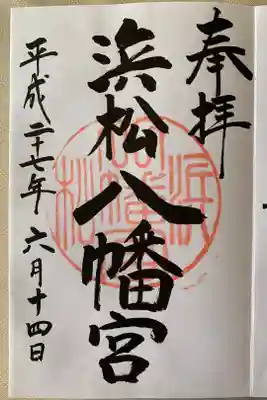 奉拝
浜松八幡宮
平成二十七年 六月十四日